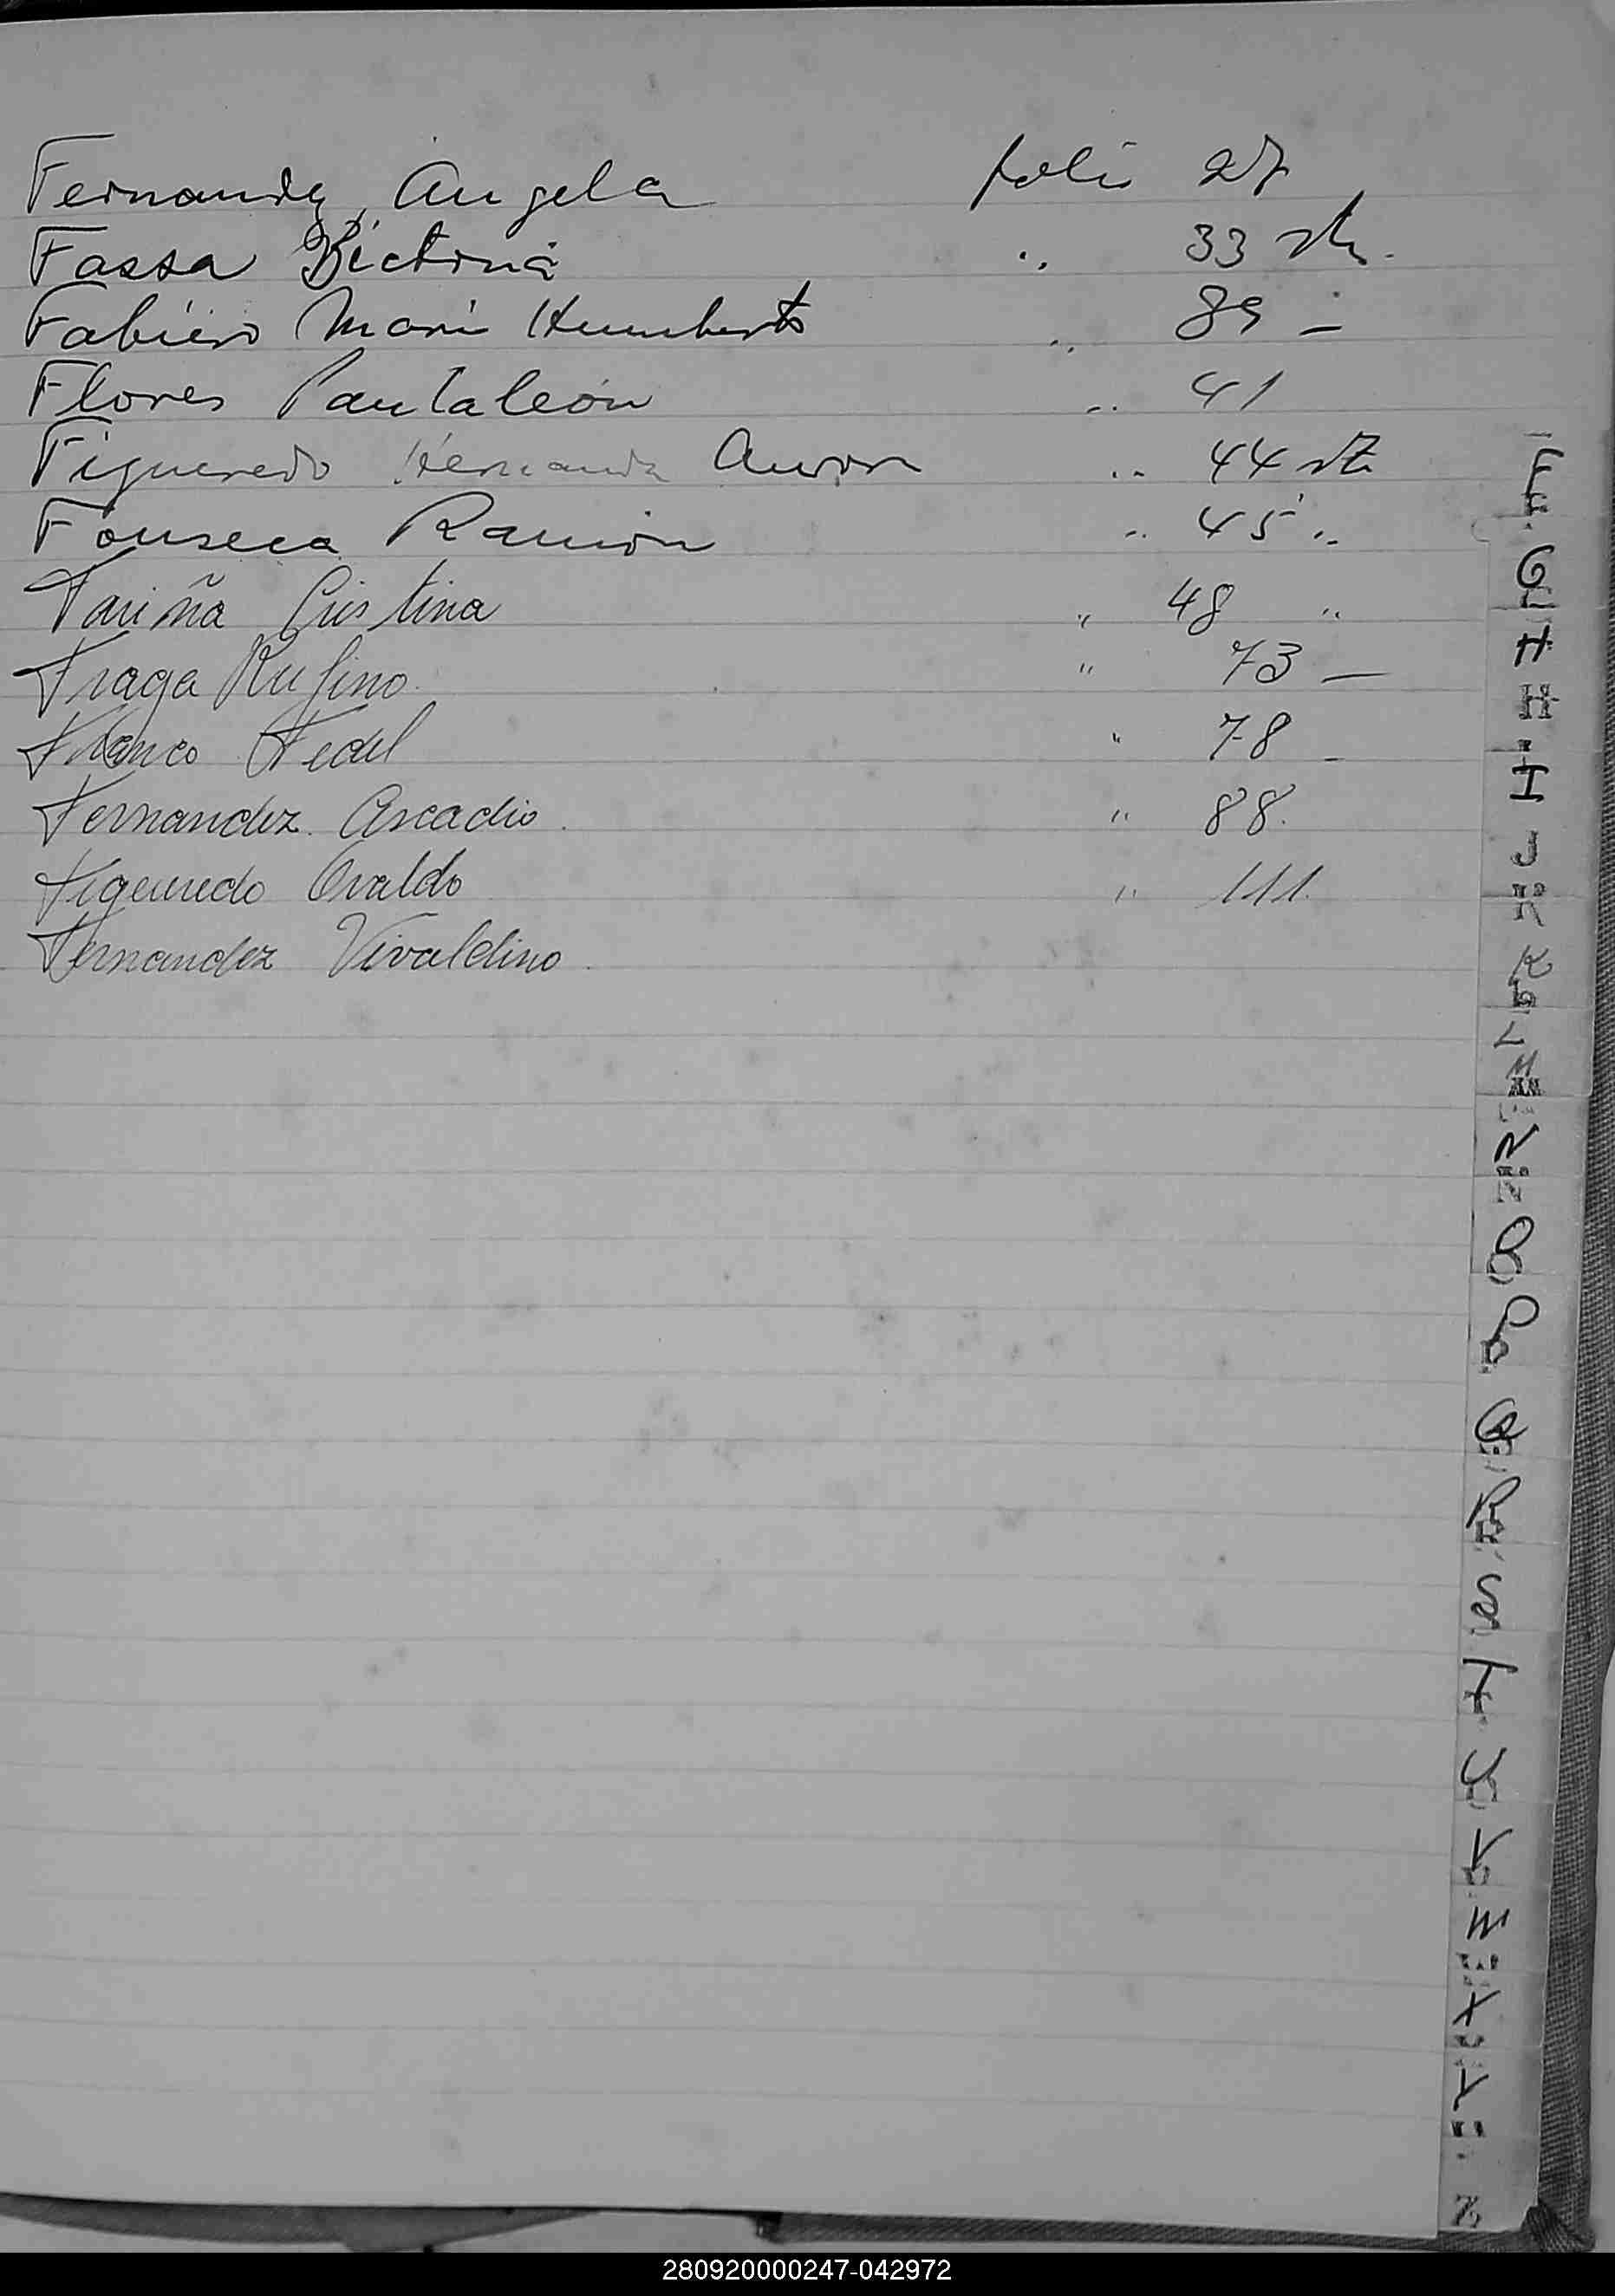 Fernandez, Angela folio 27
Fassa Bictoria .. 33 vta.
Fabiero Mari Humberto .. 89 -
Flores Pantaleón .. 41
Figueredo Hernandz Auror .. 44 vta
Fonseca Ramón .. 45 ..
Fariña Cristina " 48 "
Fraga Rufino " 73 —
Franco Fedel " 78 -
Fernandez Arcadio " 88.
Figueredo Ovaldo " 111.
Fernandez Vivaldino
F
G
H
H
I
J
K
L
M
N
O
P
Q
R
S
T
U
V
W
X
Y
Z
280920000247-042972